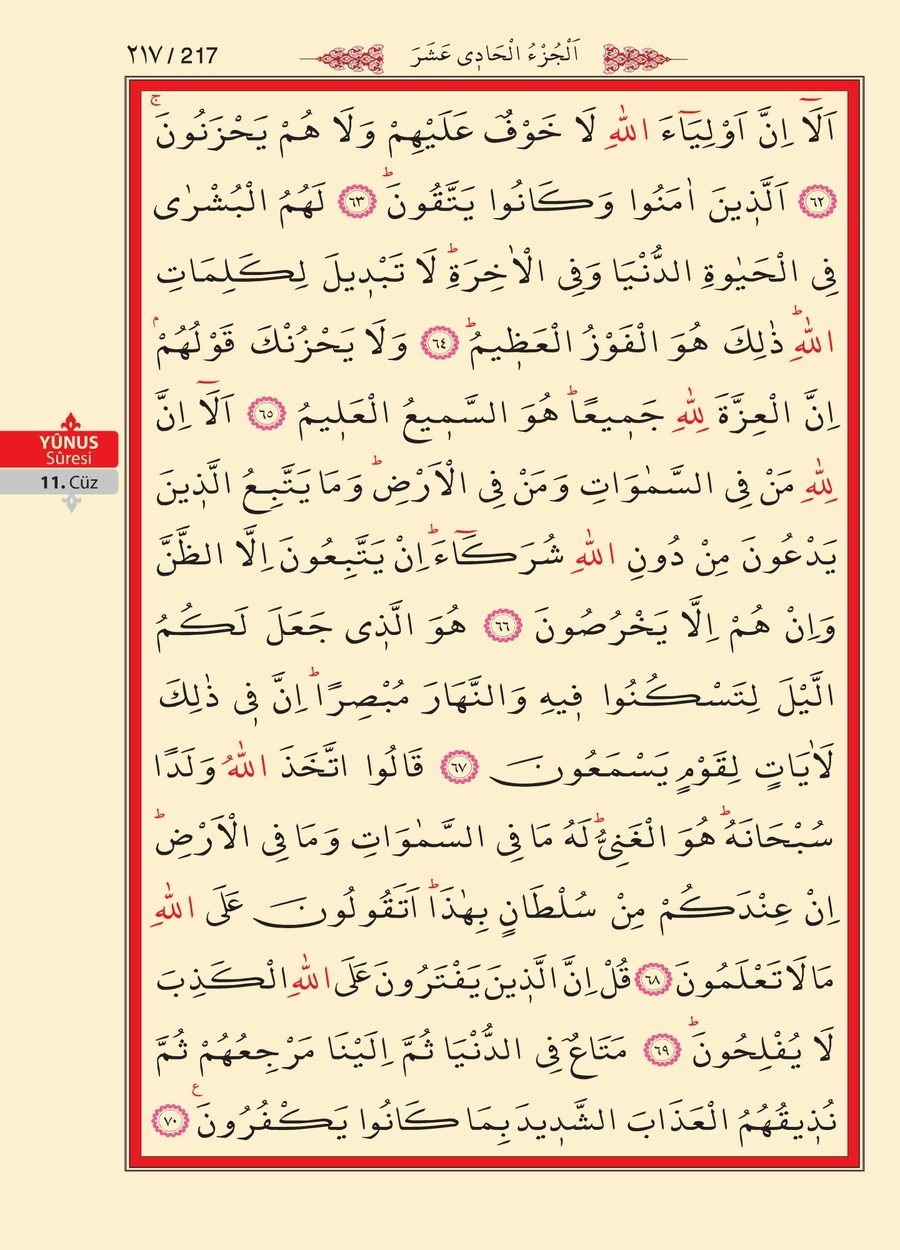 ٢١٧ / 217
اَلْجُزْءُ الْحَادِى عَشَرَ
اَلَٓا اِنَّ اَوْلِيَٓاءَ اللّٰهِ لَا خَوْفٌ عَلَيْهِمْ وَلَا هُمْ يَحْزَنُونَۚ
﴿٦٢﴾ اَلَّذ۪ينَ اٰمَنُوا وَكَانُوا يَتَّقُونَۜ ﴿٦٣﴾ لَهُمُ الْبُشْرٰى
فِى الْحَيٰوةِ الدُّنْيَا وَفِى الْاٰخِرَةِۜ لَا تَبْد۪يلَ لِكَلِمَاتِ
اللّٰهِۜ ذٰلِكَ هُوَ الْفَوْزُ الْعَظ۪يمُۜ ﴿٦٤﴾ وَلَا يَحْزُنْكَ قَوْلُهُمْۢ
اِنَّ الْعِزَّةَ لِلّٰهِ جَم۪يعًاۜ هُوَ السَّم۪يعُ الْعَل۪يمُ ﴿٦٥﴾ اَلَٓا اِنَّ
لِلّٰهِ مَنْ فِى السَّمٰوَاتِ وَمَنْ فِى الْاَرْضِۜ وَمَا يَتَّبِعُ الَّذ۪ينَ
يَدْعُونَ مِنْ دُونِ اللّٰهِ شُرَكَٓاءَۜ اِنْ يَتَّبِعُونَ اِلَّا الظَّنَّ
وَاِنْ هُمْ اِلَّا يَخْرُصُونَ ﴿٦٦﴾ هُوَ الَّذ۪ى جَعَلَ لَكُمُ
الَّيْلَ لِتَسْكُنُوا ف۪يهِ وَالنَّهَارَ مُبْصِرًاۜ اِنَّ ف۪ى ذٰلِكَ
لَاٰيَاتٍ لِقَوْمٍ يَسْمَعُونَ ﴿٦٧﴾ قَالُوا اتَّخَذَ اللّٰهُ وَلَدًا
سُبْحَانَهُۜ هُوَ الْغَنِىُّۜ لَهُ مَا فِى السَّمٰوَاتِ وَمَا فِى الْاَرْضِۜ
اِنْ عِنْدَكُمْ مِنْ سُلْطَانٍ بِهٰذَاۜ اَتَقُولُونَ عَلَى اللّٰهِ
مَا لَا تَعْلَمُونَ ﴿٦٨﴾ قُلْ اِنَّ الَّذ۪ينَ يَفْتَرُونَ عَلَى اللّٰهِ الْكَذِبَ
لَا يُفْلِحُونَۜ ﴿٦٩﴾ مَتَاعٌ فِى الدُّنْيَا ثُمَّ اِلَيْنَا مَرْجِعُهُمْ ثُمَّ
نُذ۪يقُهُمُ الْعَذَابَ الشَّد۪يدَ بِمَا كَانُوا يَكْفُرُونَ ع ﴿٧٠﴾
YÛNUS
Sûresi
11. Cüz